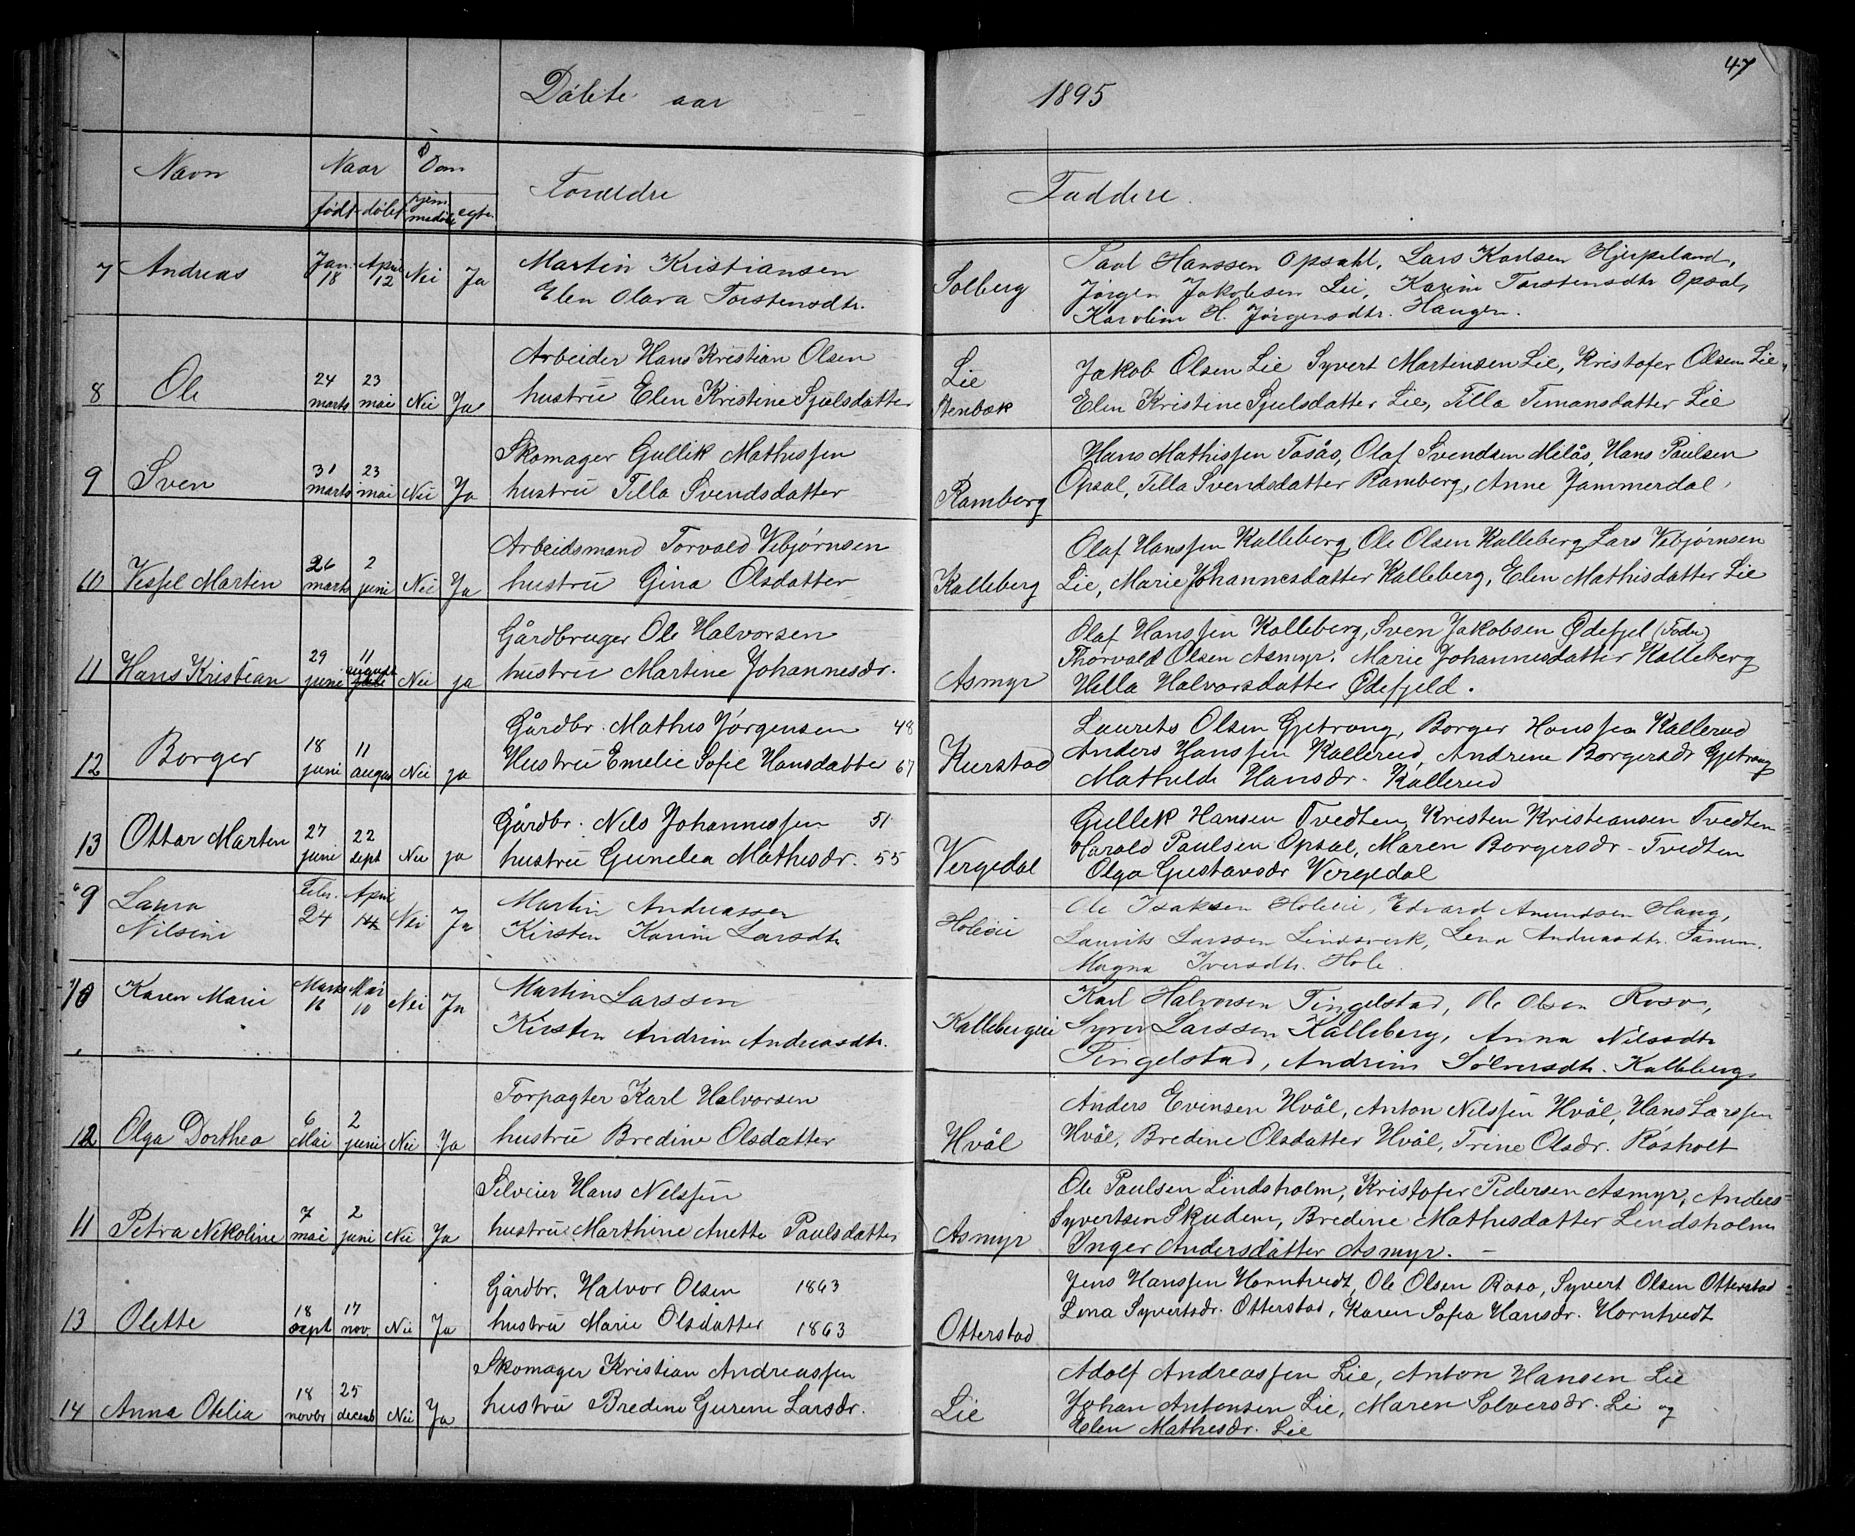 47
Døbte aar 1895
Navn Naar Om Forældre Faddere.
født døbt hjem medøbt egte.
7 Andreas Jan. 18 April 12 Nei Ja Martin Kristiansen Solberg Paul Hanssen Opsahl, Lars Karlsen Hjerpeland,
Elen Olava Torstensdtr. Jørgen Jakobsen Lie, Karin Torstensdtr Opsal,
Karoline H. Jørgensdtr. Haugen.
8 Ole 24 marts 23 mai Nei Ja Arbeider Hans Kristian Olsen Lie Jakob Olsen Lie Syvert Martinsen Lie, Kristofer Olsen Lie,
hustru Elen Kristine Sjulsdatter Stenbæk Elen Kristine Sjulsdatter Lie, Tilla Timansdatter Lie
9 Sven 31 marts 23 mai Nei Ja Skomager Gullik Mathissen Ramberg Hans Mathissen Tosås, Olaf Svendsen Milås, Hans Paulsen
hustru Tilla Svendsdatter Opsal, Tilla Svendsdatter Ramberg, Anne Jammerdal.
10 Vessel Martin 26 marts 2 juni Nei Ja Arbeidsmand Torvald Vebjørnsen Kalleberg Olaf Hanssen Kalleberg Ole Olsen Kalleberg Lars Vebjørnsen
hustru Gina Olsdatter Lie, Marie Johannesdatter Kalleberg, Elen Mathisdatter Lie
11 Hans Kristian 29 juni 11 august Nei ja Gårdbruger Ole Halvorsen Asmyr Olaf Hanssen Kalleberg, Sven Jakobsen Ødefjel (Fader)
hustru Martine Johannesdr. Thorvald Olsen Asmyr. Marie Johannesdatter Kalleberg
Hella Halvorsdatter Ødefjeld.
12 Borger 18 juni 11 augus Nei ja Gårdbr. Mathis Jørgensen 48 Kurstad Laurits Olsen Gjetrang, Borger Hanssen Kallerud
Hustru Emelie Sofie Hansdatte 67 Anders Hanssen Kallerud, Andrine Borgersdr Gjetrang
Mathilde Hansdr. Kallerud
13 Ottar Marten 27 juni 22 sept Nei ja Gårdbr. Nils Johannessen 51 Vergedal Gullek Hansen Tvedten, Kristen Kristiansen Tvedten
hustru Gunelia Mathisdr. 55 Harald Paulsen Opsal, Maren Borgersdr. Tvedten
Olga Gustavsdr Vergedal
9 Laura Nilsine Febr. 24 April 14 Nei Ja Martin Andreassen Holeeie Ole Isaksen Holeeie, Edvard Amundsen Haug,
Kirsten Karine Larsdtr Laurits Larssen Lindsverk, Lena Andreasdtr. Famun.
Magna Iversdtr. Hole.
10 Karen Marie Marts 16 Mai 10 Nei Ja Martin Larssen Kallebergeie Karl Halvorsen Tingelstad, Ole Olsen Roso,
Kirsten Andrine Andreasdtr. Syver Larssen Kalleberg, Anna Nilssdtr
Tingelstad, Andrine Sølversdtr. Kalleberg.
12 Olga Dorthea 6 Mai 2 juni Nei Ja Forpagter Karl Halvorsen Hvål Anders Evensen Hvål, Anton Nelssen Hvål, Hans Larssen
hustru Bredine Olsdatter Hvål, Bredine Olsdatter Hvål, Trine Olsdr. Rosholt
11 Petra Nikoline 7 mai 2 juni Nei Ja Selveier Hans Nelssen Asmyr Ole Paulsen Lindsholm, Kristofer Pedersen Asmyr, Anders
hustru Marthine Anette Paulsdatter Syvertsen Skuden, Bredine Mathisdatter Lindsholm
Inger Andersdatter Asmyr. –
13 Olette 18 sept 17 nov. Nei Ja Gårdbr. Halvor Olsen 1863 Otterstad Jens Hanssen Horntvedt, Ole Olsen Roso, Syvert Olsen Otterstad
hustru Marie Olsdatter 1863 Lena Syvertsdr. Otterstad, Karen Sofia Hansdr. Horntvedt
14 Anna Otelia 18 novbr 25 decemb Nei Ja Skomager Kristian Andreassen Lie Adolf Andreassen Lie, Anton Hansen Lie
hustru Bredine Gurine Larsdr. Johan Antonsen Lie, Maren Solversdr. Li og
Elen Mathisdr. Lie